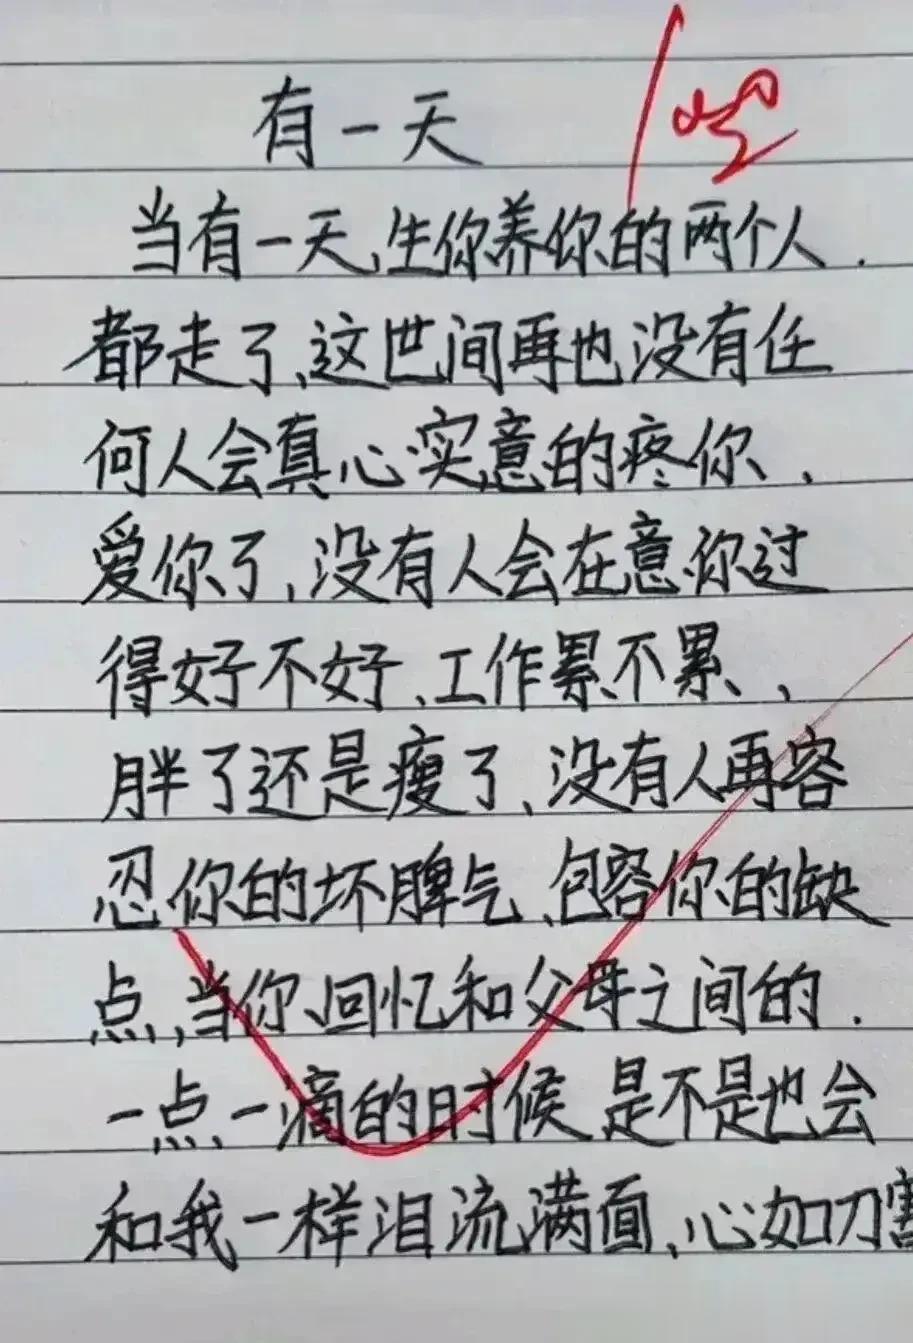 有一天
当有一天,生你养你的两个人.
都走了,这世间再也没有任
何人会真心实意的疼你、
爱你了,没有人会在意你过
得好不好、工作累不累、
胖了还是瘦了,没有人再容
忍你的坏脾气、包容你的缺
点,当你回忆和父母之间的.
一点一滴的时候 是不是也会
和我一样泪流满面、心如刀割